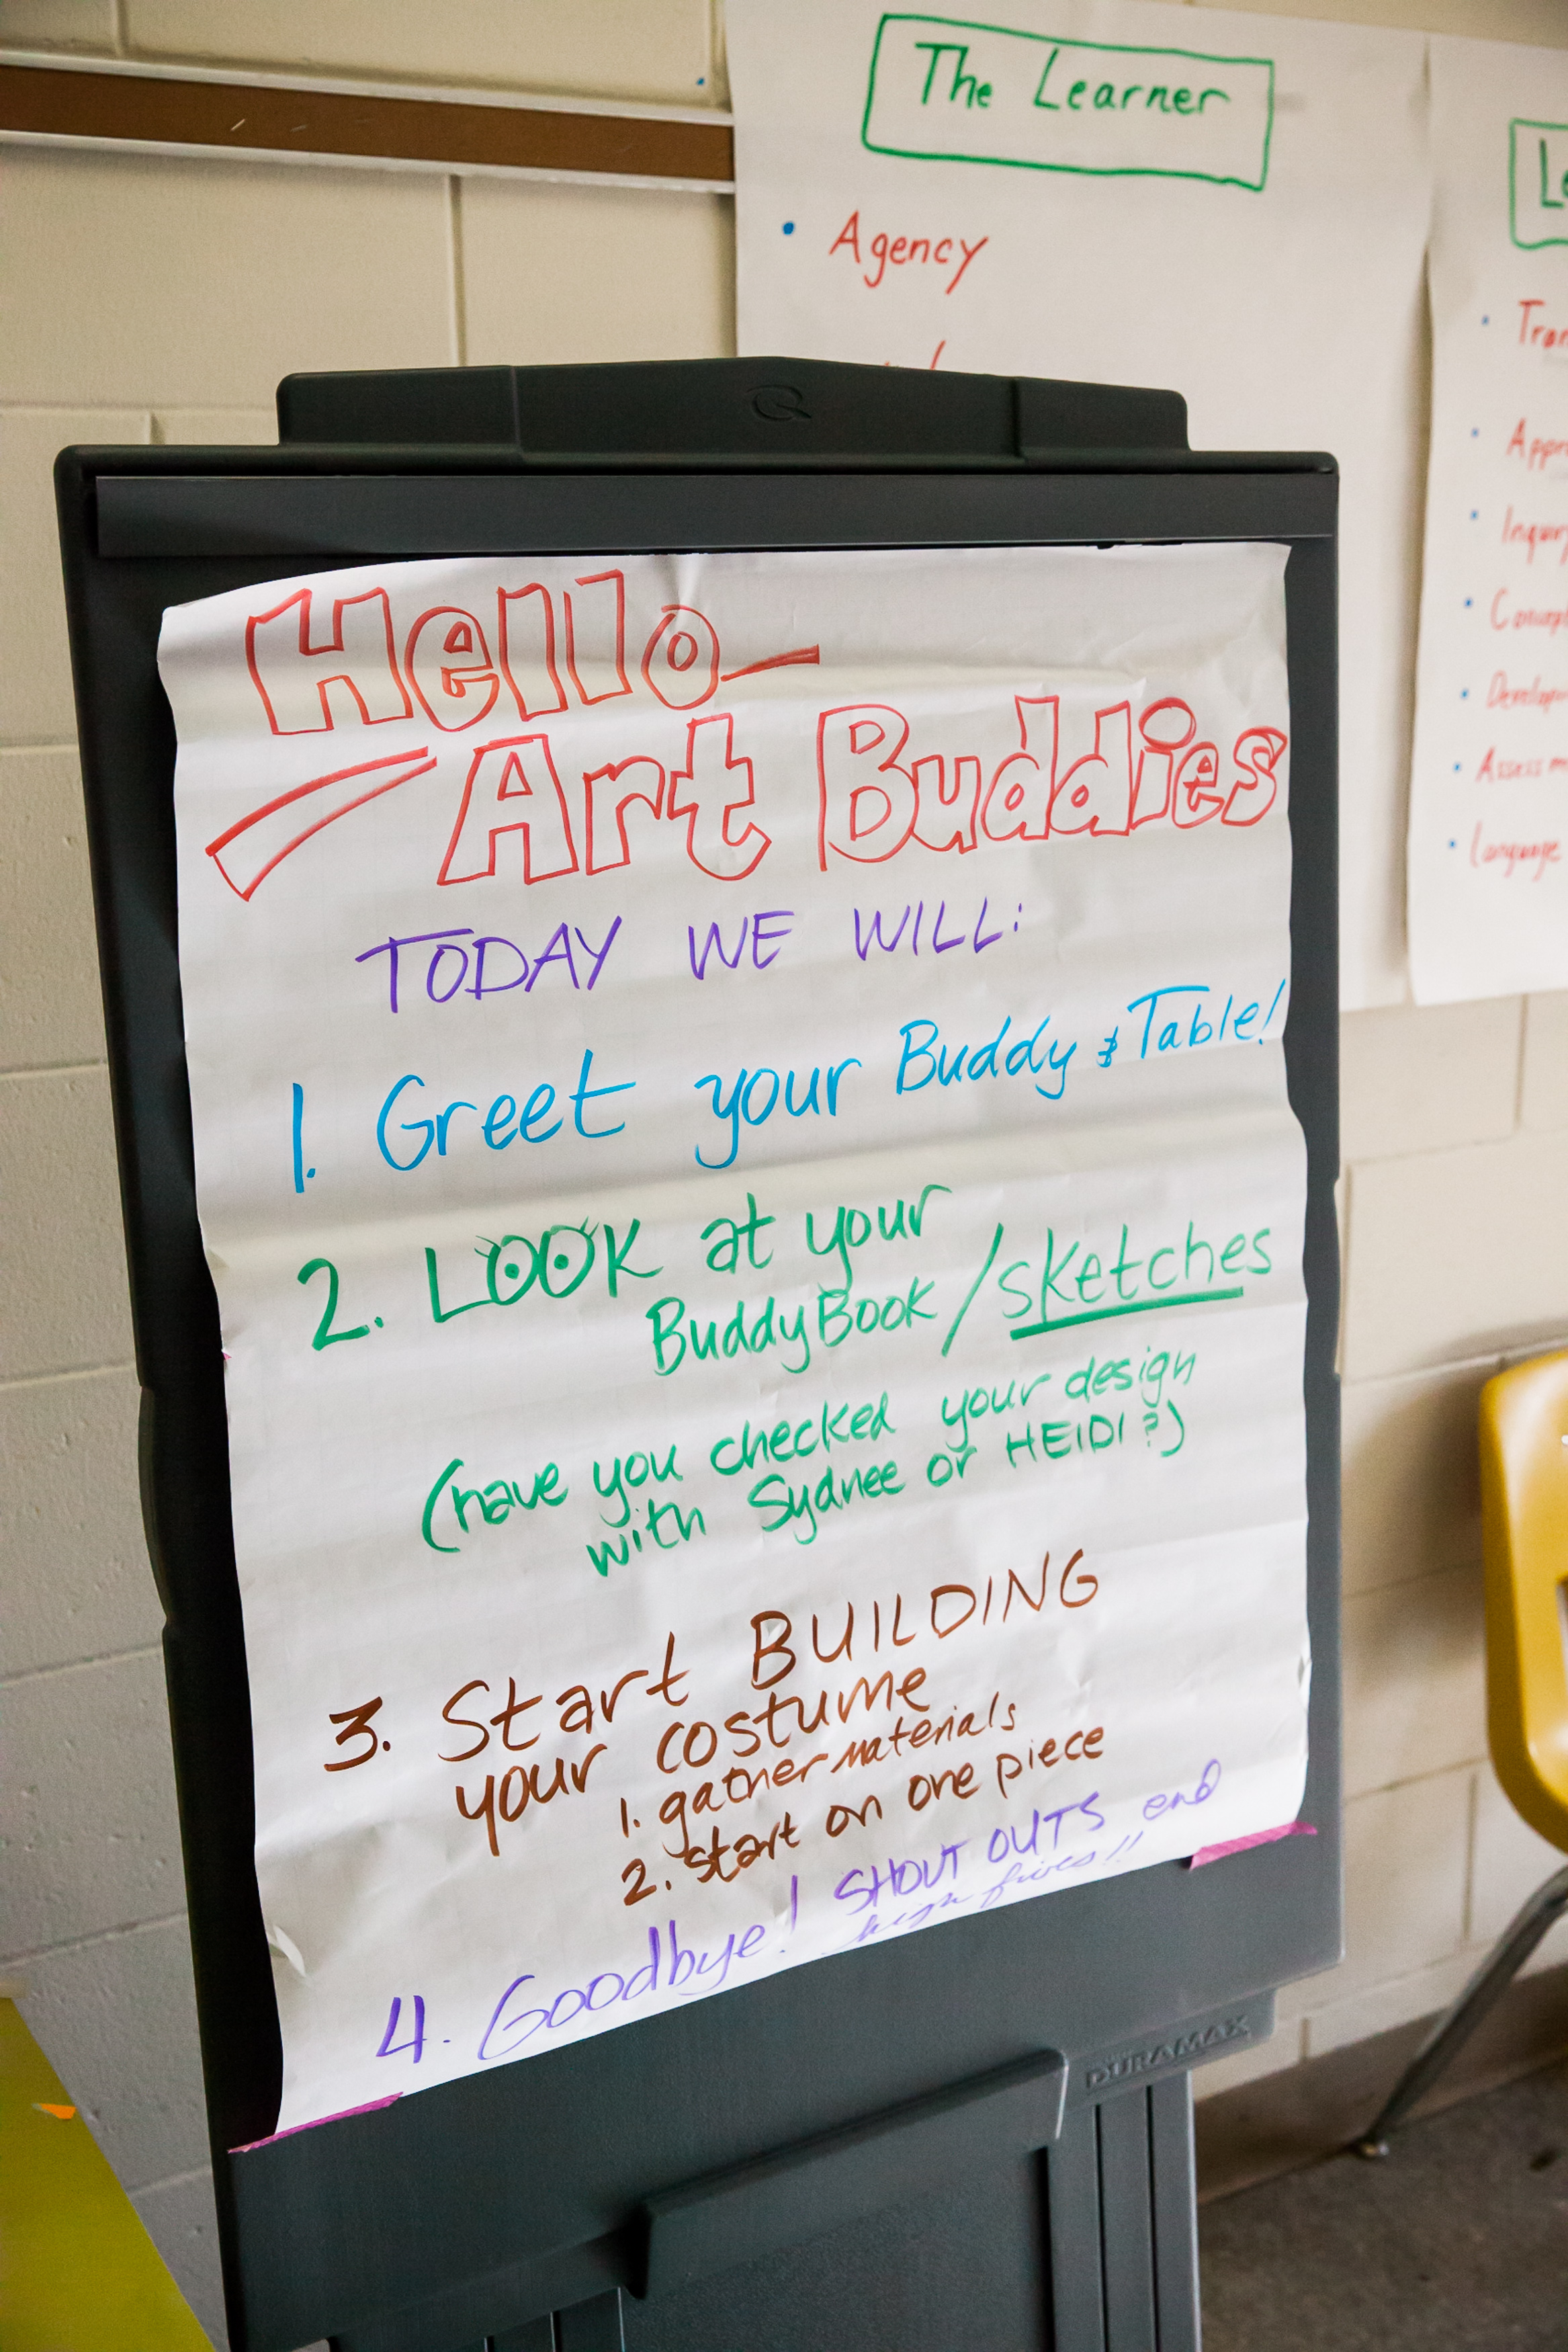 The Learner
• Agency
Le
• Tran
• Appr
• Inquir
• Concep
• Develop
• Assessm
• Language
Hello-
Art Buddies
TODAY WE WILL:
1. Greet your Buddy & Table!
2. LOOK at your
BuddyBook / sketches
(have you checked your design
with Sydnee or HEIDI?)
3. Start BUILDING
your costume
1. gather materials
2. start on one piece
4. Goodbye! SHOUT OUTS end
high fives!!
DURAMAX